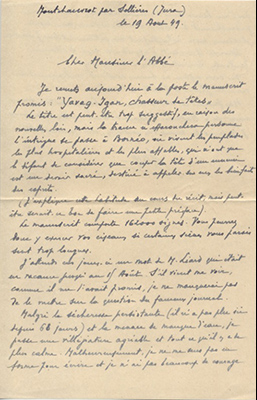 Montchauvrot par Sellières (Jura)
le 19 Août 49.
Cher Monsieur l'Abbé
Je remets aujourd'hui à la poste le manuscrit
promis : "Yavag-Igar, chasseur de têtes".
Le titre est peut-être trop suggestif, en raison des
nouvelles lois, mais la
l'intrigue se passe à Bornéo, où vivent les peuplades
les plus hospitalières et les plus affables, qui n'ont que
le défaut de considérer que couper la tête d'un ennemi
est un devoir sacré, destiné à
esprits.
(J'explique cette habitude au cours du récit, mais peut-
être serait-ce bon de faire une petite préface).
Le manuscrit comporte 160000 signes. Vous pourrez
donc y exercer vos ciseaux si certaines scènes vous parais
sent trop longues.
J'attends ces jours-ci un mot de M. Liard qui était
en vacances jusqu'au 15 Août. S'il vient me voir,
comme il me l'avait promis, je ne manquerai pas
de le mettre sur la question du fameux journal.
Malgré la sécheresse persistante (il n'a pas plu ici
depuis 66 jours) et la menace de manque d'eau, je
passe une villégiature agréable et tout ce qu'il y a de
plus calme. Malheureusement, je ne me sens pas en
forme pour écrire et je n'ai pas beaucoup de courage